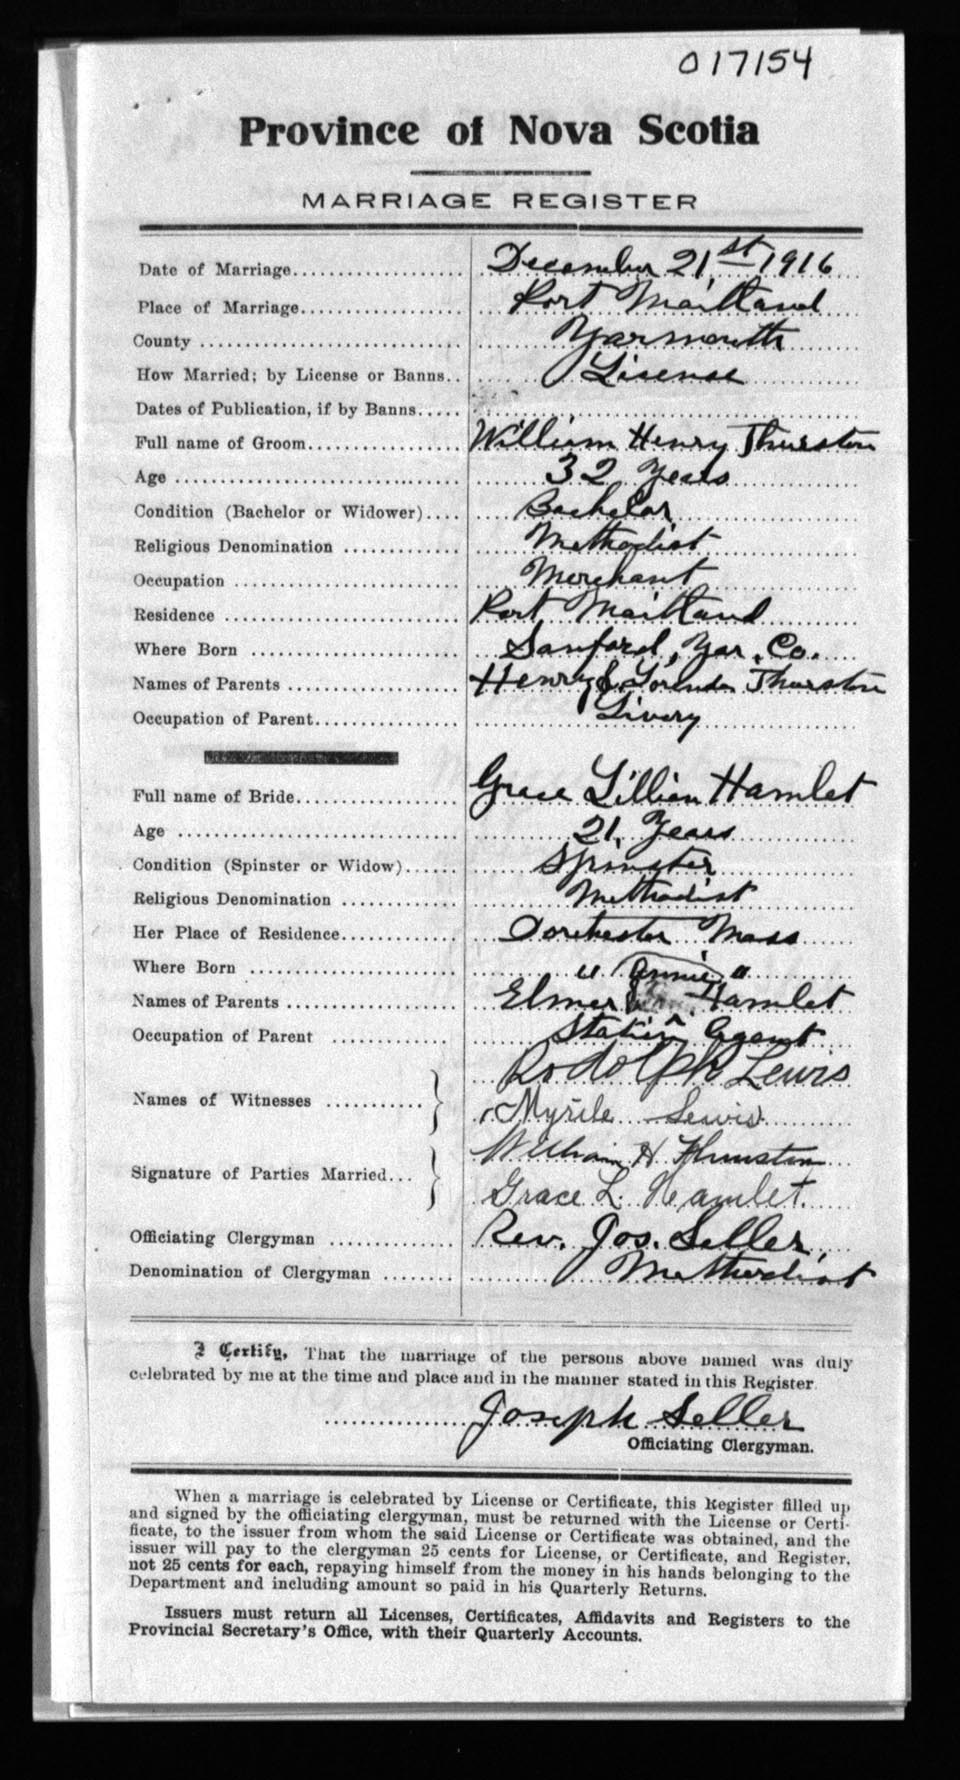 017154
Province of Nova Scotia
MARRIAGE REGISTER
Date of Marriage.................... December 21st 1916
Place of Marriage................... Port Maitland
County ............................. Yarmouth
How Married; by License or Banns.. License
Dates of Publication, if by Banns.....
Full name of Groom................. William Henry Thurston
Age ............................... 32 Years
Condition (Bachelor or Widower).... Bachelor
Religious Denomination ............ Methodist
Occupation ........................ Merchant
Residence ......................... Port Maitland
Where Born ........................ Sanford, Yar. Co.
Names of Parents .................. Henry & Thurston
Occupation of Parent............... Livery
Full name of Bride................. Grace Lillian Hamlet
Age ............................... 21 Years
Condition (Spinster or Widow)...... Spinster
Religious Denomination ............ Methodist
Her Place of Residence............. Dorchester Mass
Where Born ........................ " "
Annie
Names of Parents .................. Elmer & Hamlet
Occupation of Parent .............. Station Agent
Rodolph Lewis
Names of Witnesses ...........
Myrtle Lewis
William H Thurston
Signature of Parties Married...
Grace L. Hamlet.
Officiating Clergyman ............. Rev. Jos. Seller,
Denomination of Clergyman ........ Methodist
I Certify, That the marriage of the persons above named was duly
celebrated by me at the time and place and in the manner stated in this Register
Joseph Seller
Officiating Clergyman.
When a marriage is celebrated by License or Certificate, this Register filled up
and signed by the officiating clergyman, must be returned with the License or Certi-
ficate, to the issuer from whom the said License or Certificate was obtained, and the
issuer will pay to the clergyman 25 cents for License, or Certificate, and Register,
not 25 cents for each, repaying himself from the money in his hands belonging to the
Department and including amount so paid in his Quarterly Returns.
Issuers must return all Licenses, Certificates, Affidavits and Registers to the
Provincial Secretary's Office, with their Quarterly Accounts.